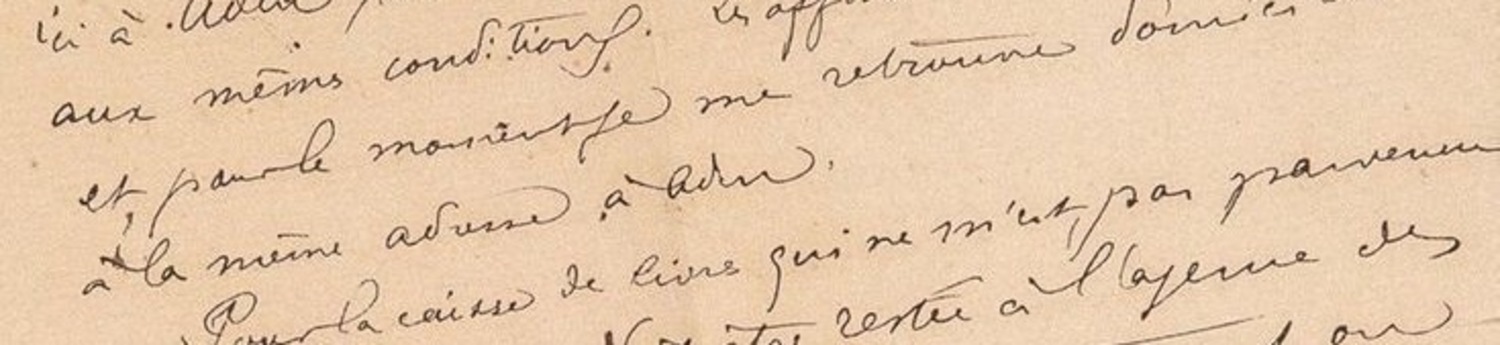 ici à Aden
aux mêmes conditions. Les aff
et, pour le moment je me retrouve
à la même adresse, à Aden.
Pour la caisse de livres qui ne m'est pas parvenue
restée à l'agence des
ou